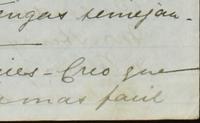 tengas semejan-
Creo que
mas facil